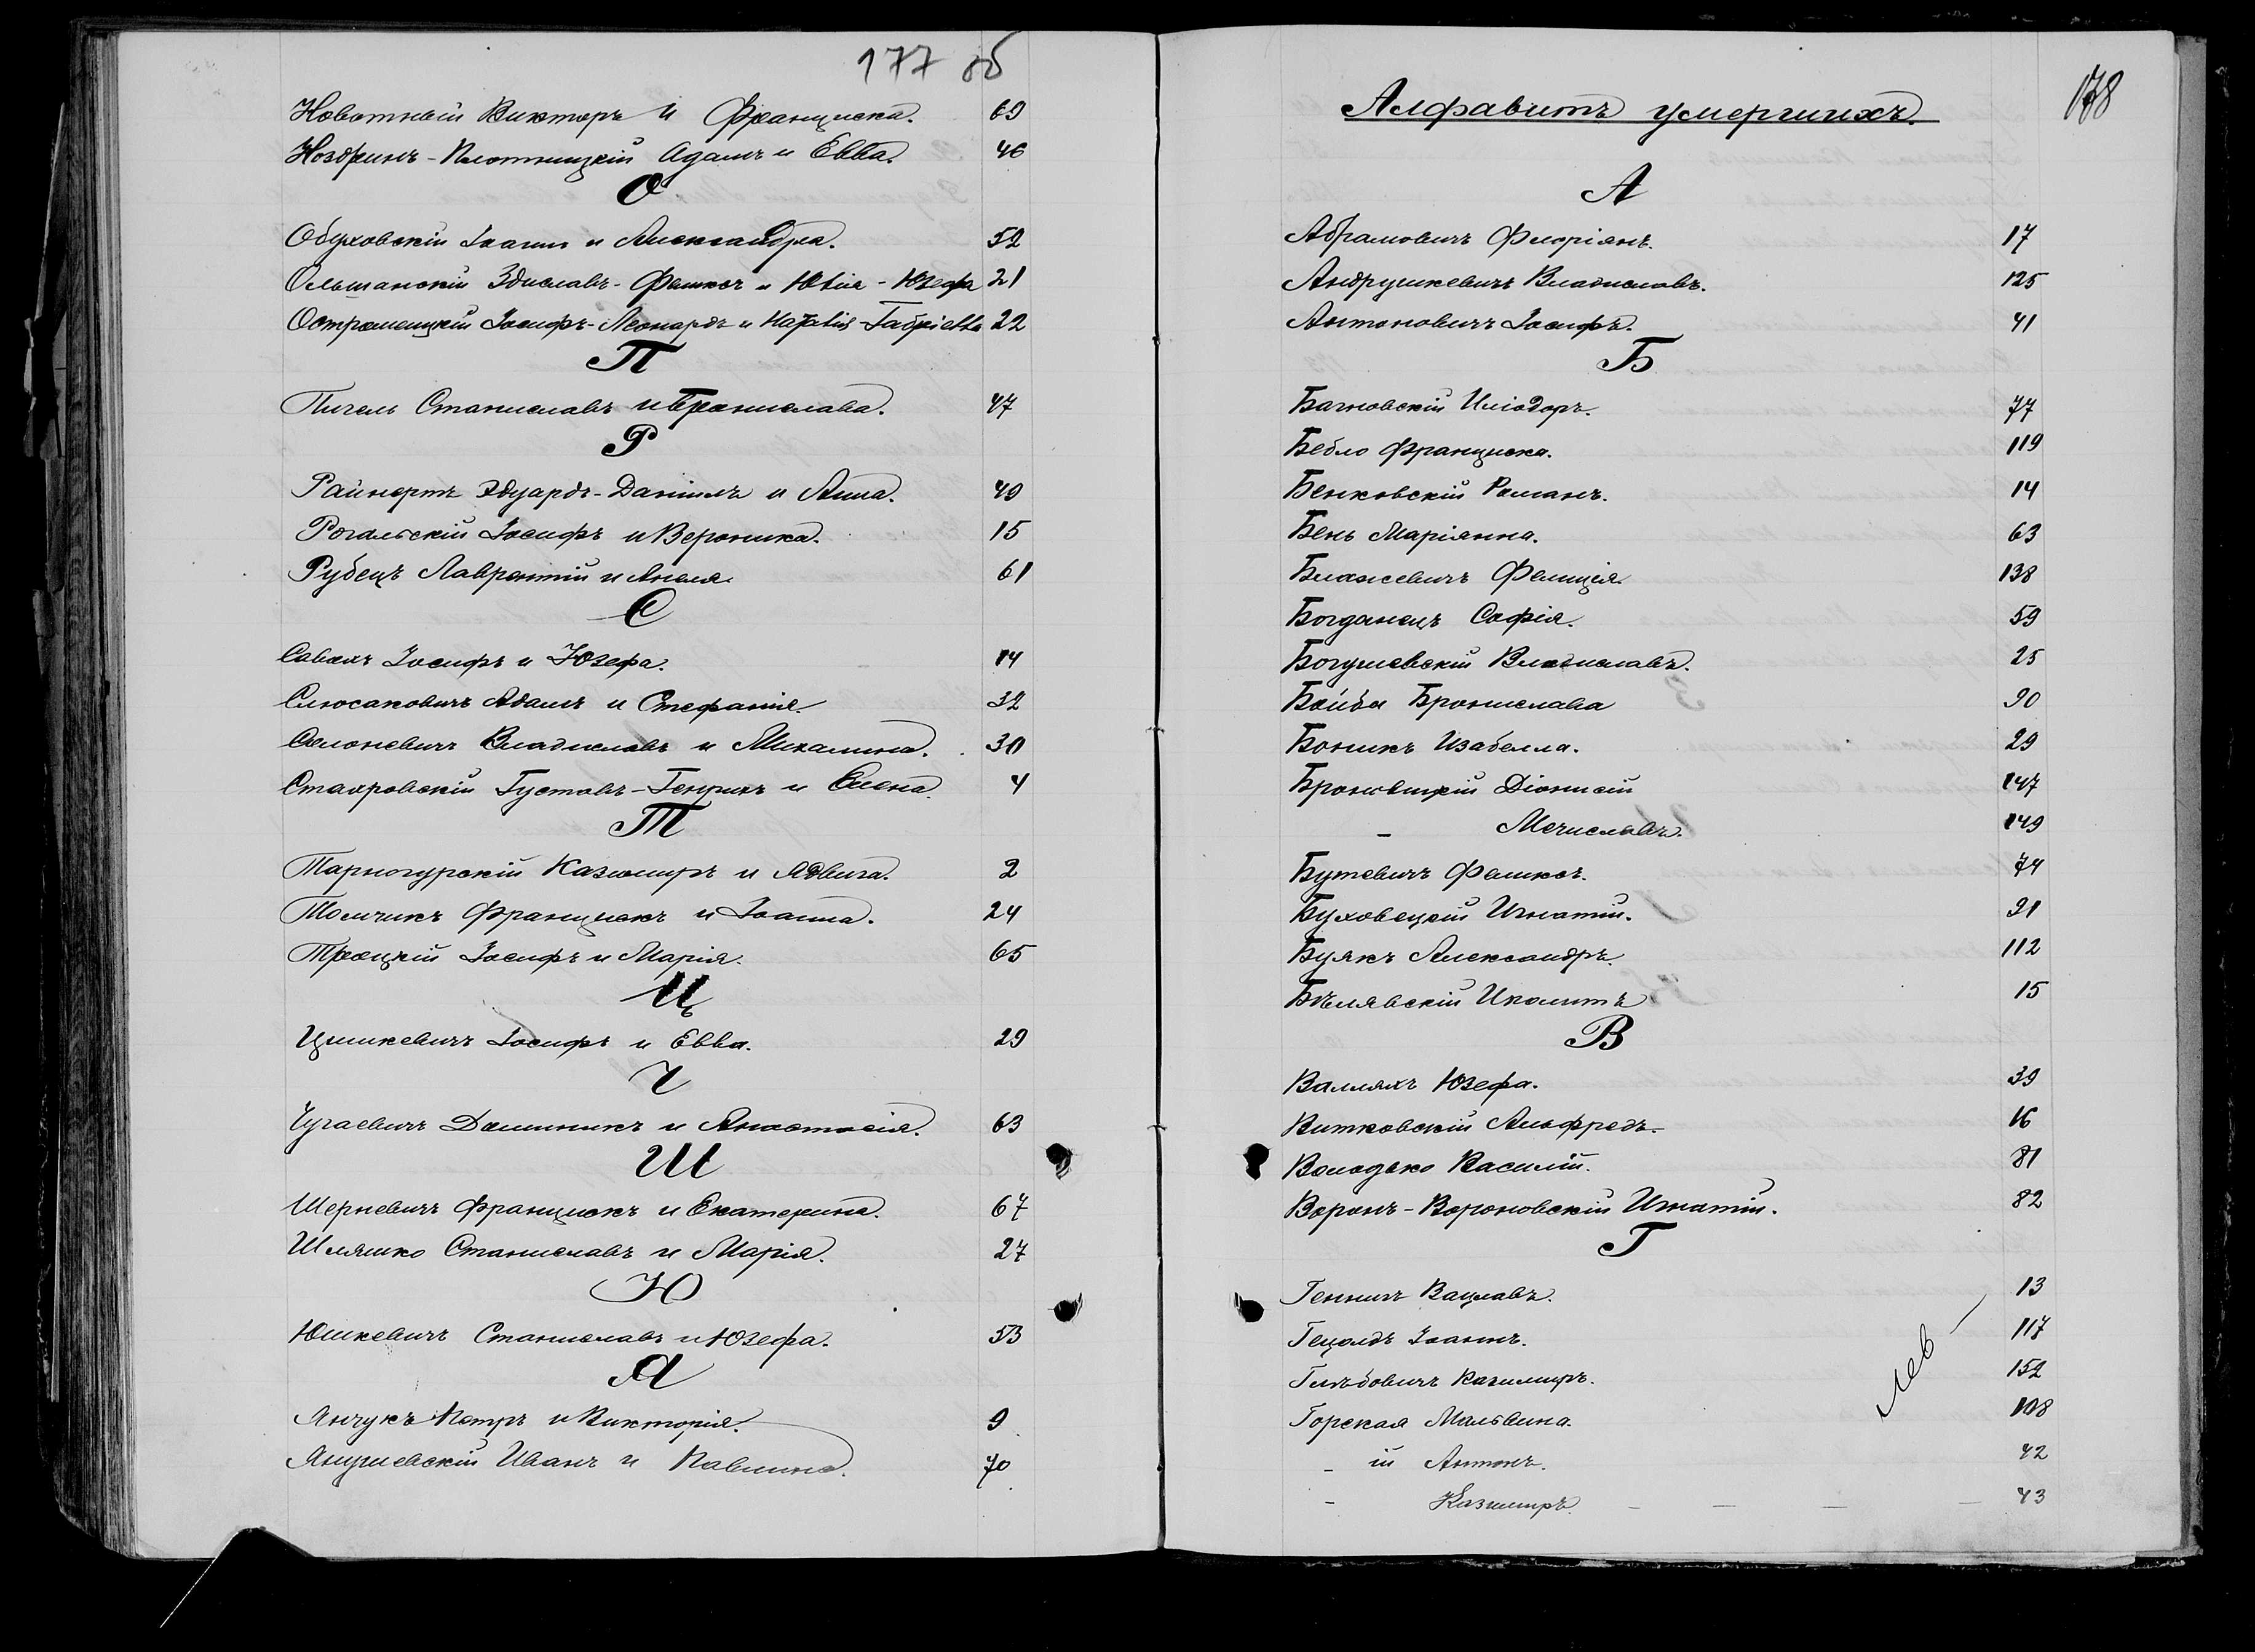 177 об
Новотный Викторъ и Франциска. 69
Ноздринъ-Плотницкій Адамъ и Евва. 46
О
Обуховскій Іоаннъ и Александра. 52
Ольшанскій Здиславъ-Феликсъ и Юлія-Юзефа 21
Остромецкій Іосифъ-Леонардъ и Наталія-Габріелла 22
П
Пигель Станиславъ и Бронислава. 47
Р
Райнертъ Эдуардъ-Даніилъ и Анна. 49
Рогальскій Іосифъ и Вероника. 15
Рубецъ Лаврентій и Анеля 61
С
Савакъ Іосифъ и Юзефа. 14
Слюсаковичъ Адамъ и Стефанія. 32
Солоневичъ Владиславъ и Михалина. 30
Стахровскій Густавъ-Генрихъ и Елена. 4
Т
Тарногурскій Казимиръ и Ядвига. 2
Томчикъ Францискъ и Іоанна. 24
Троцкій Іосифъ и Марія. 65
Ц
Цишкевичъ Іосифъ и Евва. 29
Ч
Чугаевичъ Доминикъ и Анастасія. 63
Ш
Шерневичъ Францискъ и Екатерина. 67
Шляшко Станиславъ и Марія. 27
Ю
Юшкевичъ Станиславъ и Юзефа. 53
Я
Янчукъ Петръ и Викторія. 9
Янушевскій Иванъ и Павлина. 70
178
Алфавитъ умершихъ.
А
Абрамовичъ Флоріянъ. 17
Андрушкевичъ Владиславъ. 125
Антоновичъ Іосифъ. 41
Б
Багновскій Иліодоръ. 77
Бебло Франциска. 119
Бенковскій Романъ. 14
Бень Маріянна. 63
Блажевичъ Фелиція. 138
Богданецъ Софія. 59
Богушевскій Владиславъ. 25
Бойба Бронислава 90
Боникъ Изабелла. 29
Броновицкій Діонисій 147
- Мечиславъ. 149
Бутевичъ Феликсъ. 74
Буховецкій Игнатій. 91
Буякъ Александръ. 112
Бѣлявскій Иполитъ 15
В
Валляхъ Юзефа. 39
Витковскій Альфредъ. 16
Володько Василій. 81
Воронъ-Вороновскій Игнатій. 82
Г
Геннигъ Вацлавъ. 13
Гецольдъ Іоаннъ. 117
Глѣбовичъ Казимиръ. 152
Горская Мальвина. 108
- ій Антонъ. 42
- Казимиръ. - - - - 43
лев -